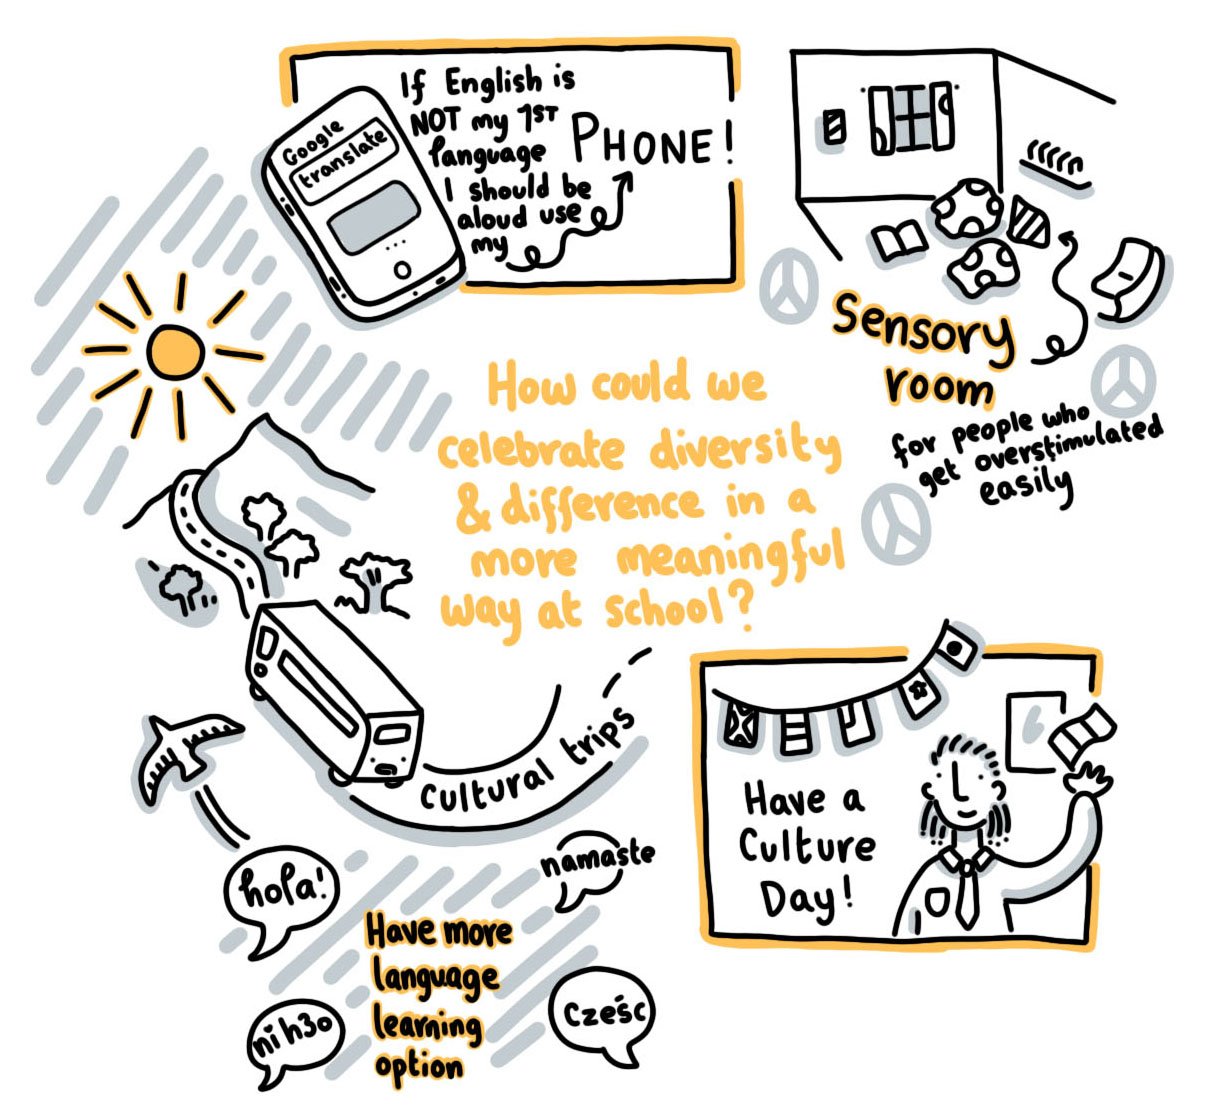 Google
translate
If English is
NOT my 1ST
language
I should be
aloud use
my
PHONE!
Sensory
room
for people who
get overstimulated
easily
How could we
celebrate diversity
& difference in a
more meaningful
way at school?
cultural trips
Have a
Culture
Day!
hola!
namaste
Have more
language
learning
option
ni h3o
Cześc